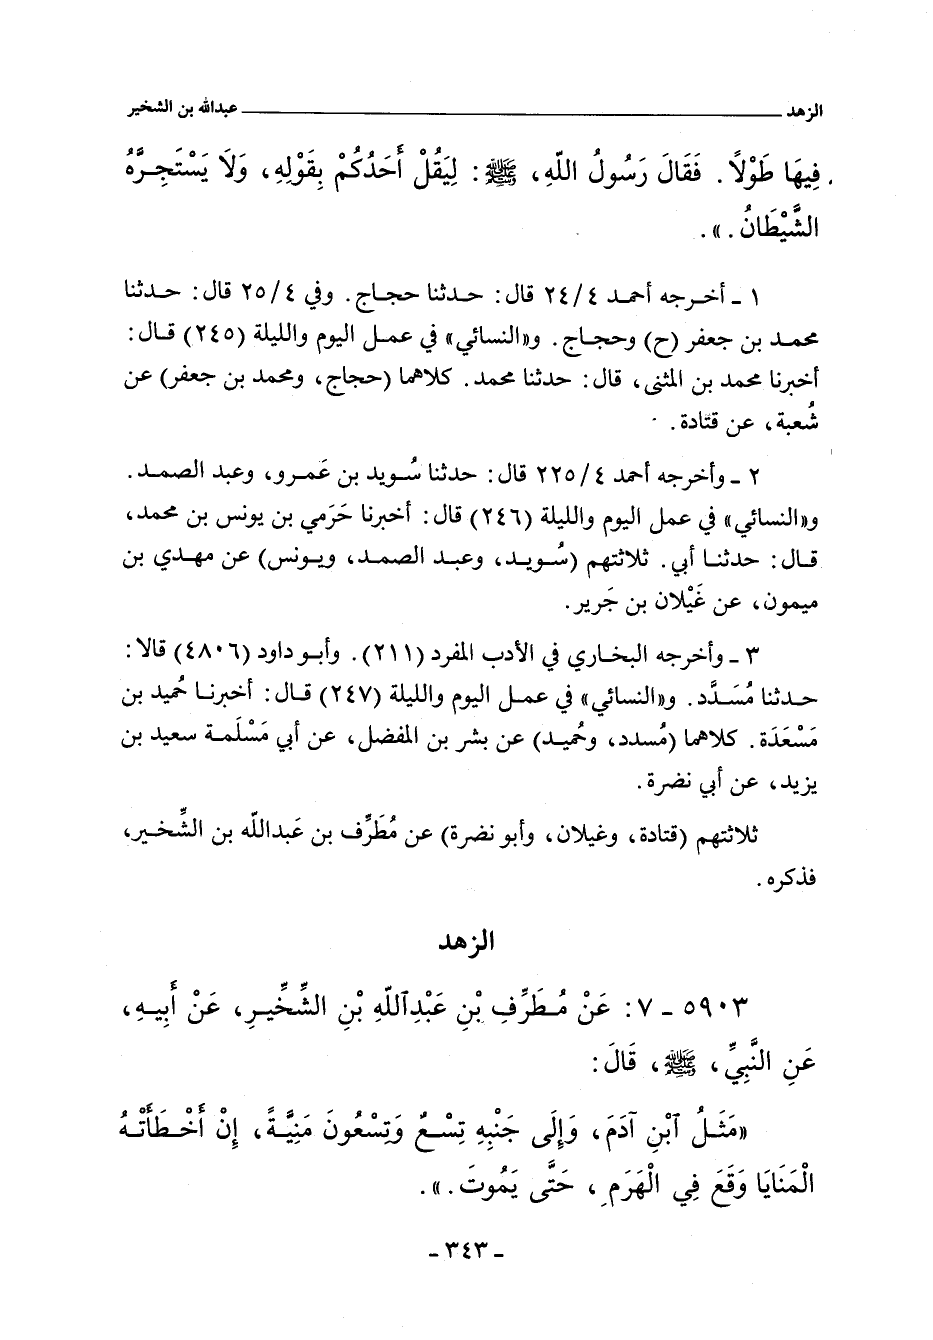 الزهد عبدالله بن الشخير
فِيهَا طَوْلاً. فَقَالَ رَسُولُ اللّهِ، ﷺ: لِيَقُلْ أَحَدُكُمْ بِقَوْلِهِ، وَلَا يَسْتَجِرَّهُ
الشَّيْطَانُ.».
١ - أخرجه أحمد ٢٤/٤ قال: حدثنا حجاج. وفي ٢٥/٤ قال: حدثنا
محمد بن جعفر (ح) وحجاج. و«النسائي» في عمل اليوم والليلة (٢٤٥) قال:
أخبرنا محمد بن المثنى، قال: حدثنا محمد. كلاهما (حجاج، ومحمد بن جعفر) عن
شُعبة، عن قتادة.
٢ - وأخرجه أحمد ٢٢٥/٤ قال: حدثنا سُويد بن عَمرو، وعبد الصمد.
و«النسائي» في عمل اليوم والليلة (٢٤٦) قال: أخبرنا حَرَمي بن يونس بن محمد،
قال: حدثنا أبي. ثلاثتهم (سُويد، وعبد الصمد، ويونس) عن مهدي بن
ميمون، عن غَيْلان بن جَرير.
٣ - وأخرجه البخاري في الأدب المفرد (٢١١). وأبو داود (٤٨٠٦) قالا:
حدثنا مُسَدَّد. و«النسائي» في عمل اليوم والليلة (٢٤٧) قال: أخبرنا حُميد بن
مَسْعَدَة. كلاهما (مُسدد، وحُميد) عن بشر بن المفضل، عن أبي مَسْلَمة سعيد بن
يزيد، عن أبي نضرة.
ثلاثتهم (قتادة، وغيلان، وأبو نضرة) عن مُطَرِّف بن عَبدالله بن الشِّخير،
فذكره.
الزهد
٥٩٠٣ - ٧: عَنْ مُطَرِّفِ بْنِ عَبْدِاللّهِ بْنِ الشِّخِّيرِ، عَنْ أَبِيهِ،
عَنِ النَّبِيِّ، ﷺ، قَالَ:
«مَثَلُ ٱبْنِ آدَمَ، وَإِلَى جَنْبِهِ تِسْعٌ وَتِسْعُونَ مَنِيَّةً، إِنْ أَخْطَأَتْهُ
الْمَنَايَا وَقَعَ فِي الْهَرَمِ، حَتَّى يَمُوتَ.».
- ٣٤٣ -